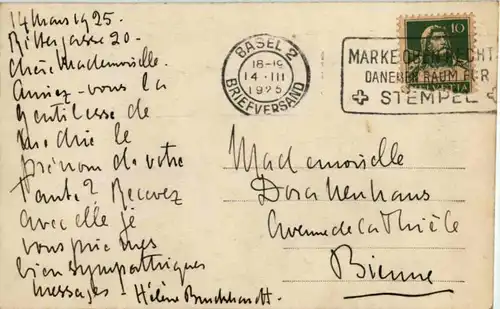 14 Mars 1925.
Rittergasse 20.
Chère Mademoiselle.
Auriez-vous la
gentillesse de
me dire le
prénom de votre
tante? Recevez
avec elle je
vous prie mes
bien sympathiques
messages - Hélène Burckhardt.
BASEL 2
18-19
14.III
1925
BRIEFVERSAND
MARKE OBEN RECHTS
DANEBEN RAUM FÜR
STEMPEL
10
HELVETIA
Mademoiselle
Avenue de la Thièle
Bienne